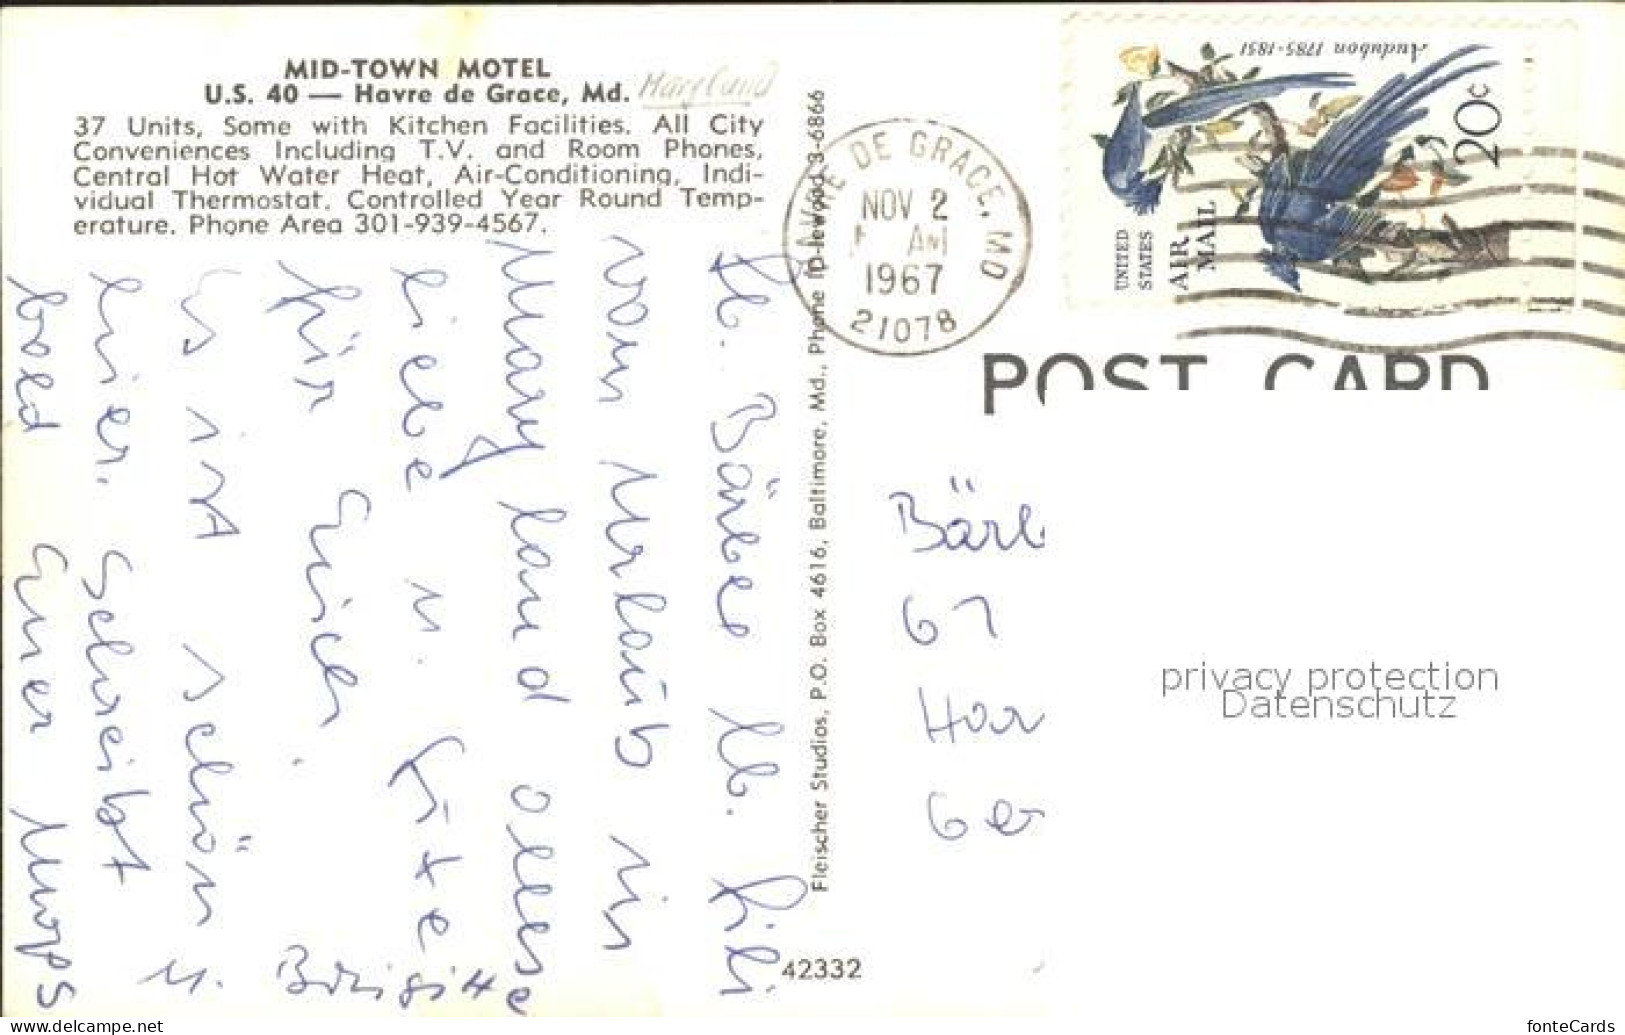 MID-TOWN MOTEL
U.S. 40 — Havre de Grace, Md. Maryland
37 Units, Some with Kitchen Facilities. All City
Conveniences Including T.V. and Room Phones,
Central Hot Water Heat, Air-Conditioning, Indi-
vidual Thermostat. Controlled Year Round Temp-
erature. Phone Area 301-939-4567.
Lb. Bärbel lb. Fili
vom Urlaub in
Maryland alles
liebe u. Gute
für Euch.
Es ist schön
hier. Schreibt
bald Euer Mops
u. Brigitte
Fleischer Studios, P.O. Box 4616, Baltimore, Md., Phone IDlewood 3-6866
42332
HAVRE DE GRACE, MD
NOV 2
AM
1967
21078
Audubon 1785-1851
20c
UNITED
STATES
AIR
MAIL
POST CARD
Bärb
61
Har
Ger
privacy protection
Datenschutz
https://www.delcampe.net
fonteCards